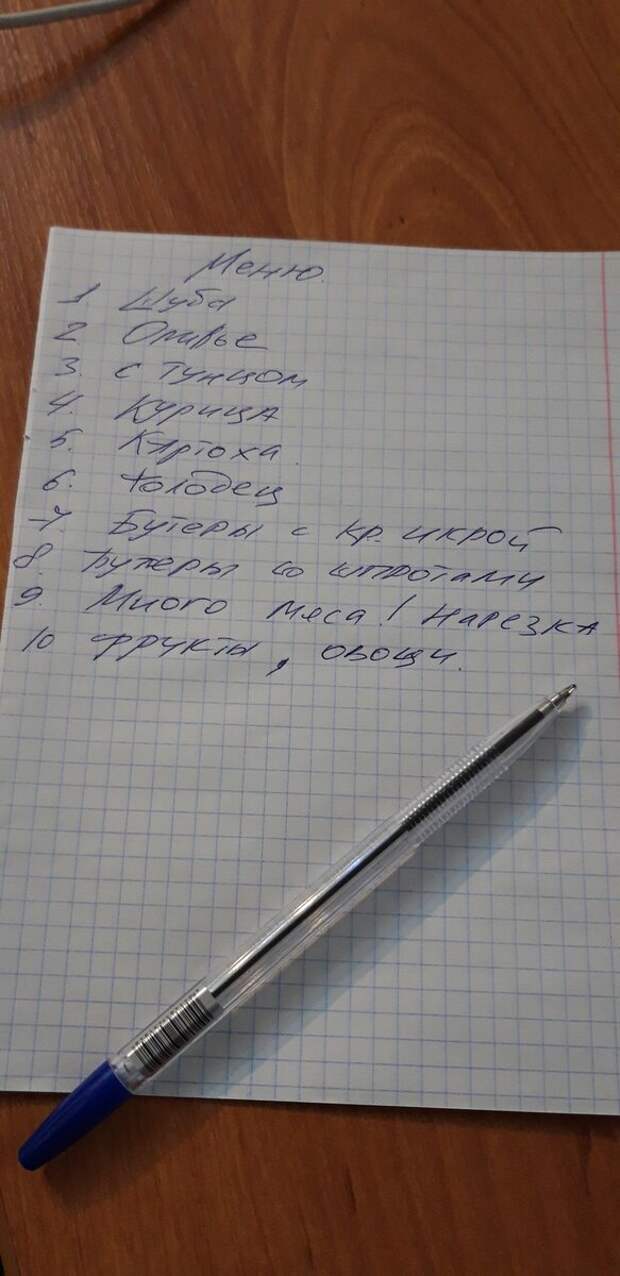 Меню.
1 Шуба
2 Оливье
3. с тунцом
4. Курица
5. Картоха.
6. Холодец
7. Бутеры с кр. икрой
8. Бутеры со шпротами
9. Много мяса! Нарезка
10 Фрукты, овощи.